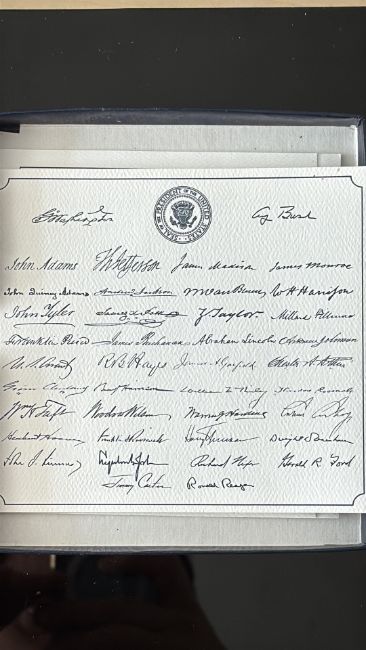 G Washington
SEAL OF THE PRESIDENT OF THE UNITED STATES
G Bush
John Adams Th Jefferson James Madison James Monroe
John Quincy Adams Andrew Jackson M Van Buren W H Harrison
John Tyler James K Polk Z Taylor Millard Fillmore
Franklin Pierce James Buchanan Abraham Lincoln Andrew Johnson
U. S. Grant R B Hayes James A Garfield Chester A Arthur
Grover Cleveland Benj Harrison William McKinley Theodore Roosevelt
Wm H Taft Woodrow Wilson Warren G Harding Calvin Coolidge
Herbert Hoover Franklin D Roosevelt Harry Truman Dwight D Eisenhower
John F. Kennedy Lyndon B Johnson Richard Nixon Gerald R. Ford
Jimmy Carter Ronald Reagan